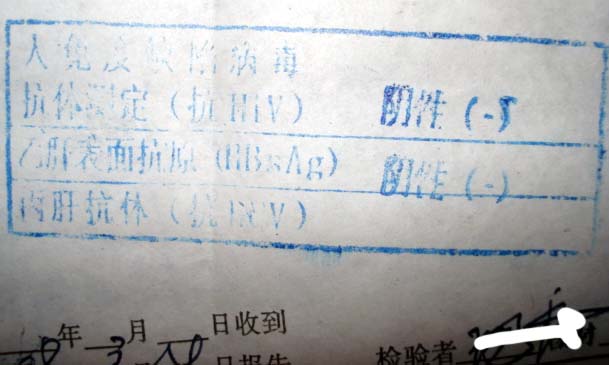 人免疫缺陷病毒
抗体测定（抗HIV） 阴性（-）
乙肝表面抗原（HBsAg） 阴性（-）
丙肝抗体（抗HCV）
年 3月 日收到
日报告 检验者